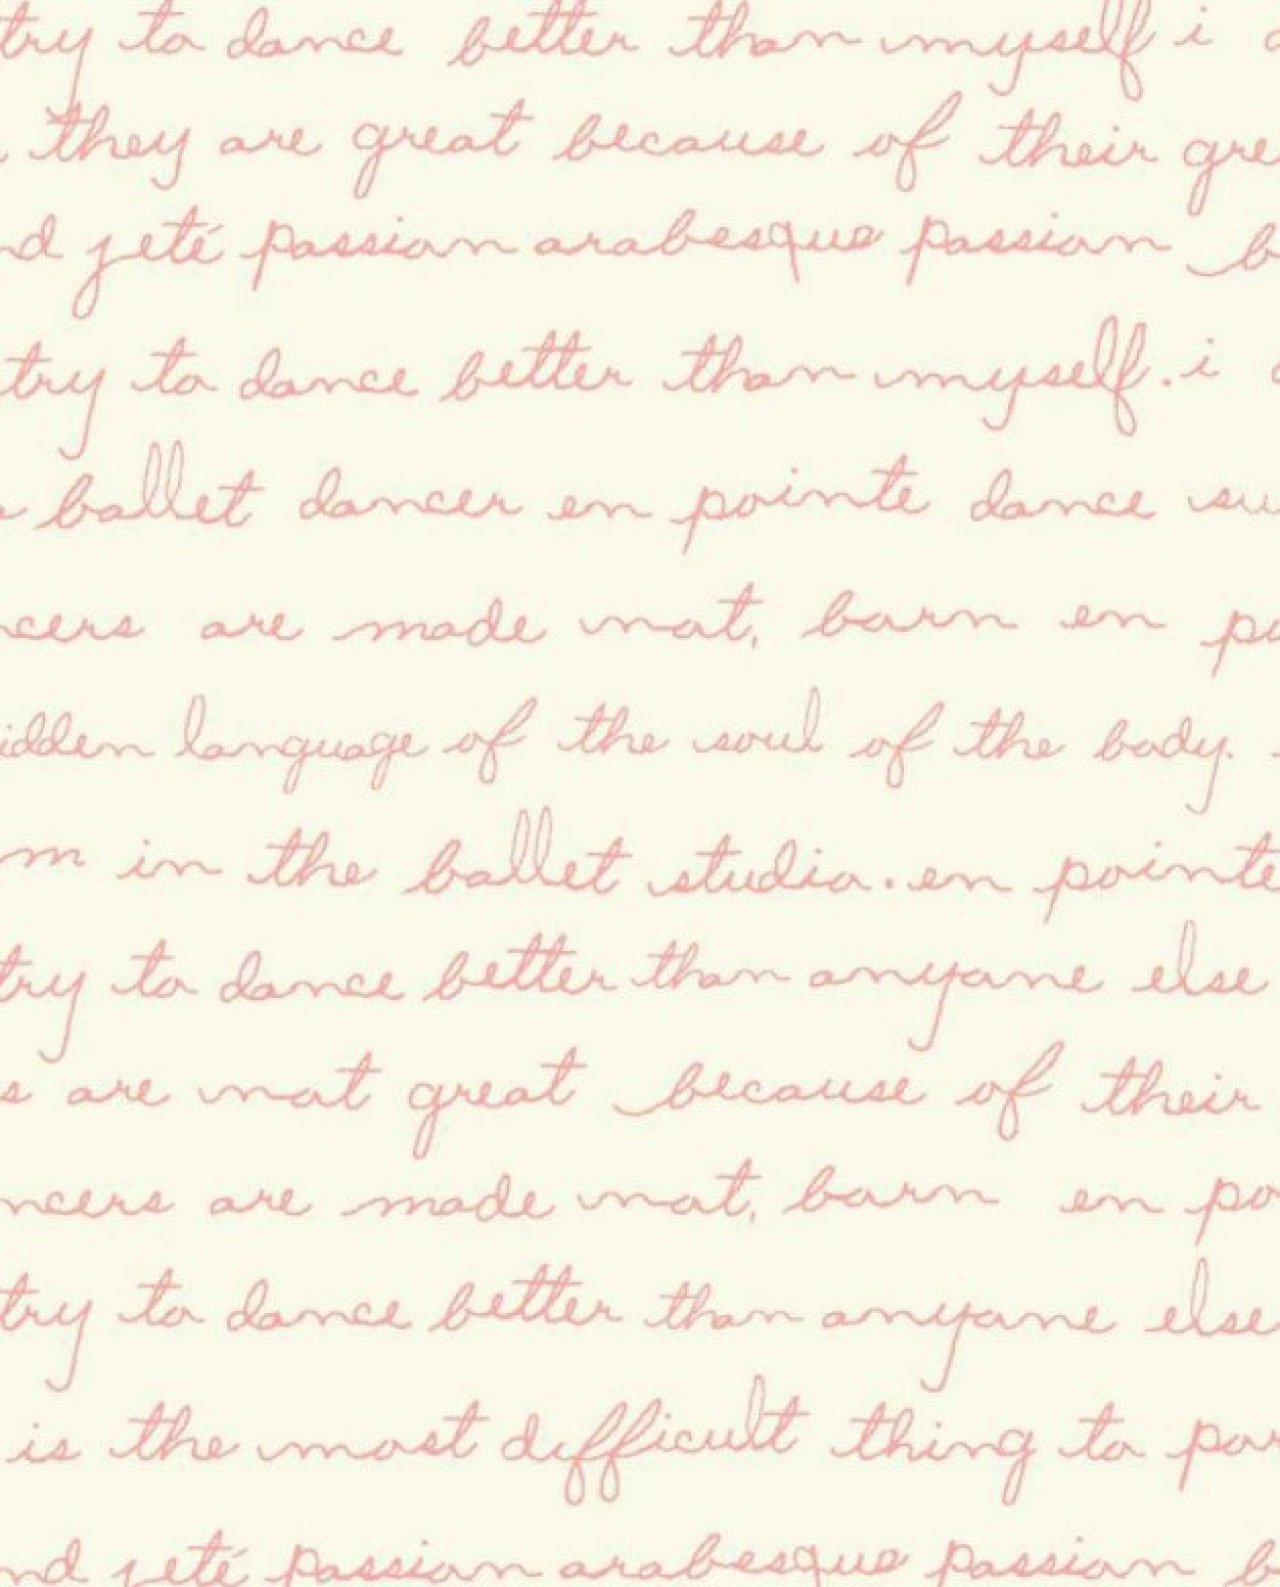 try to dance better than myself i
they are great because of their gre
nd jeté passion arabesque passion b
try to dance better than myself. i
ballet dancer en pointe dance su
ncers are made not, born en po
idden language of the soul of the body.
m in the ballet studio. en pointe
try to dance better than anyone else
s are not great because of their
ncers are made not, born en po
try to dance better than anyone else
is the most difficult thing to por
nd jeté passion arabesque passion b